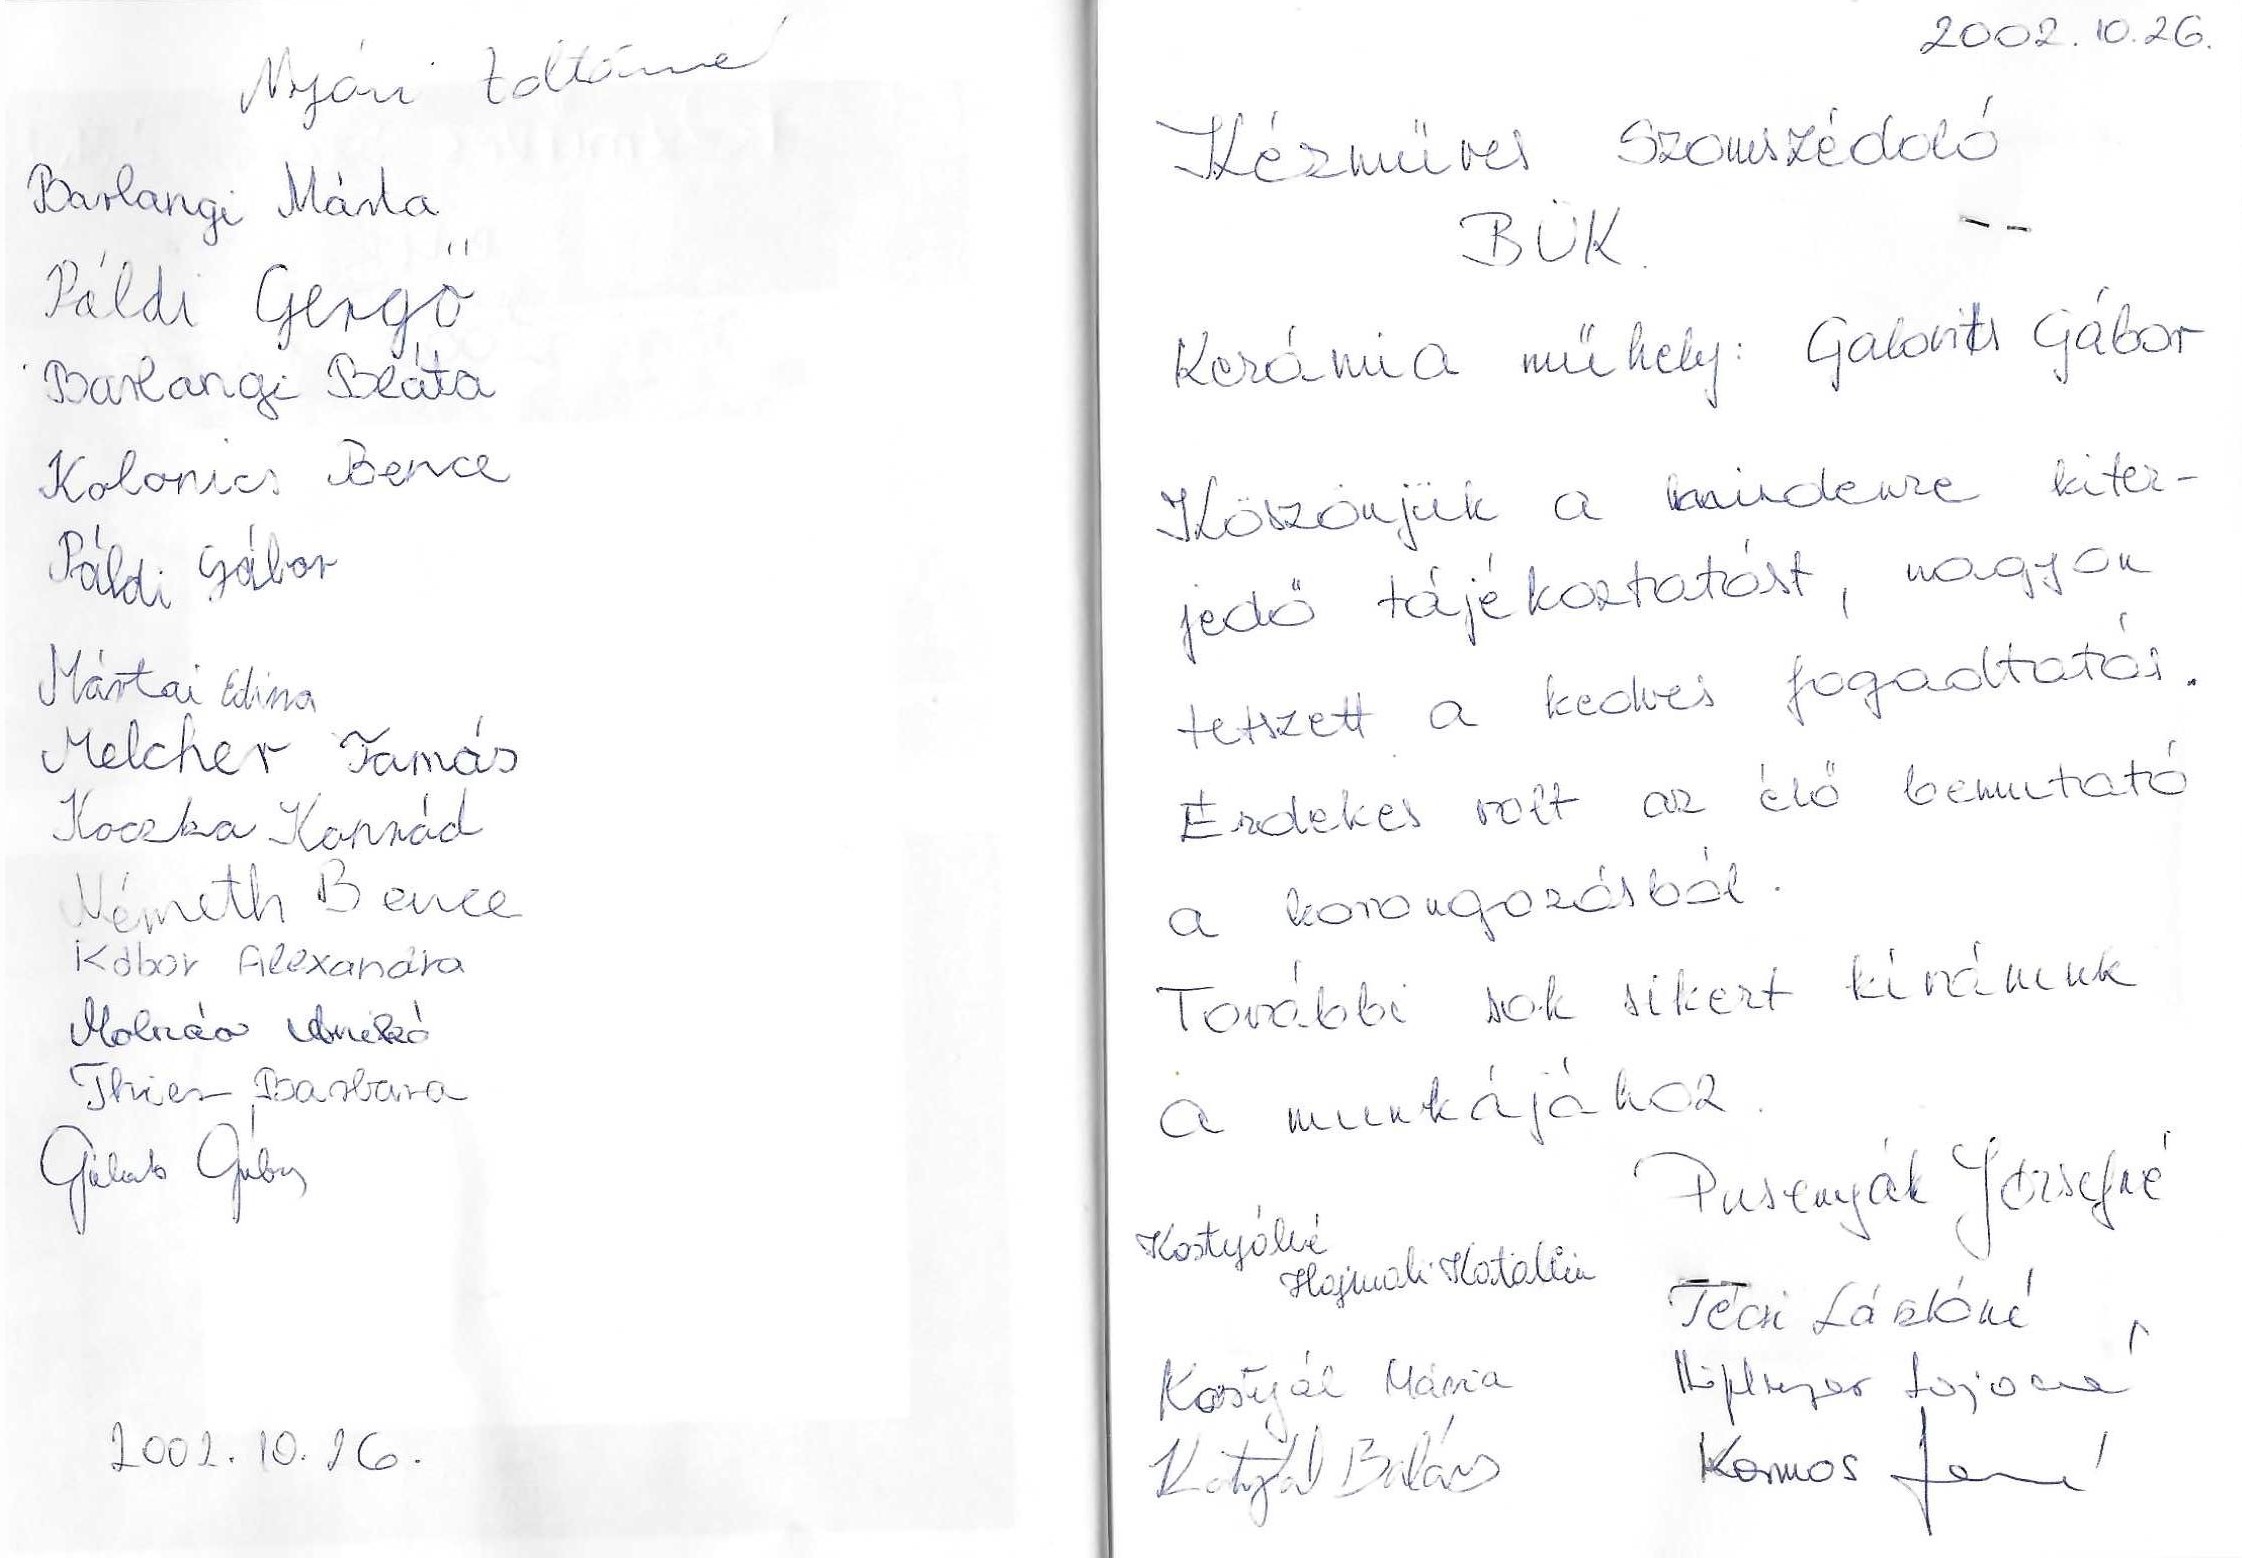 Nyári Zoltánné
Barlangi Márta
Páldi Gergő
Barlangi Beáta
Kolonics Bence
Páldi Gábor
Mártai Edina
Melcher Tamás
Koczka Konrád
Németh Bence
Kóbor Alexandra
Molnár Anikó
Thier Barbara
Gábor
2002. 10. 26.
2002. 10. 26.
Kézműves Szomszédoló
BÜK.
Kerámia műhely: Galovits Gábor
Köszönjük a mindenre kiter-
jedő tájékoztatást, nagyon
tetszett a kedves fogadtatás.
Érdekes volt az élő bemutató
a korongozásból.
További sok sikert kívánunk
a munkájához.
Pusenyák Józsefné
Kostyálné
Hajmási Katallin
Técsi Lászlóné
Kostyál Mária
Lajosné
Kostyál Balázs
Kormos Jenőné